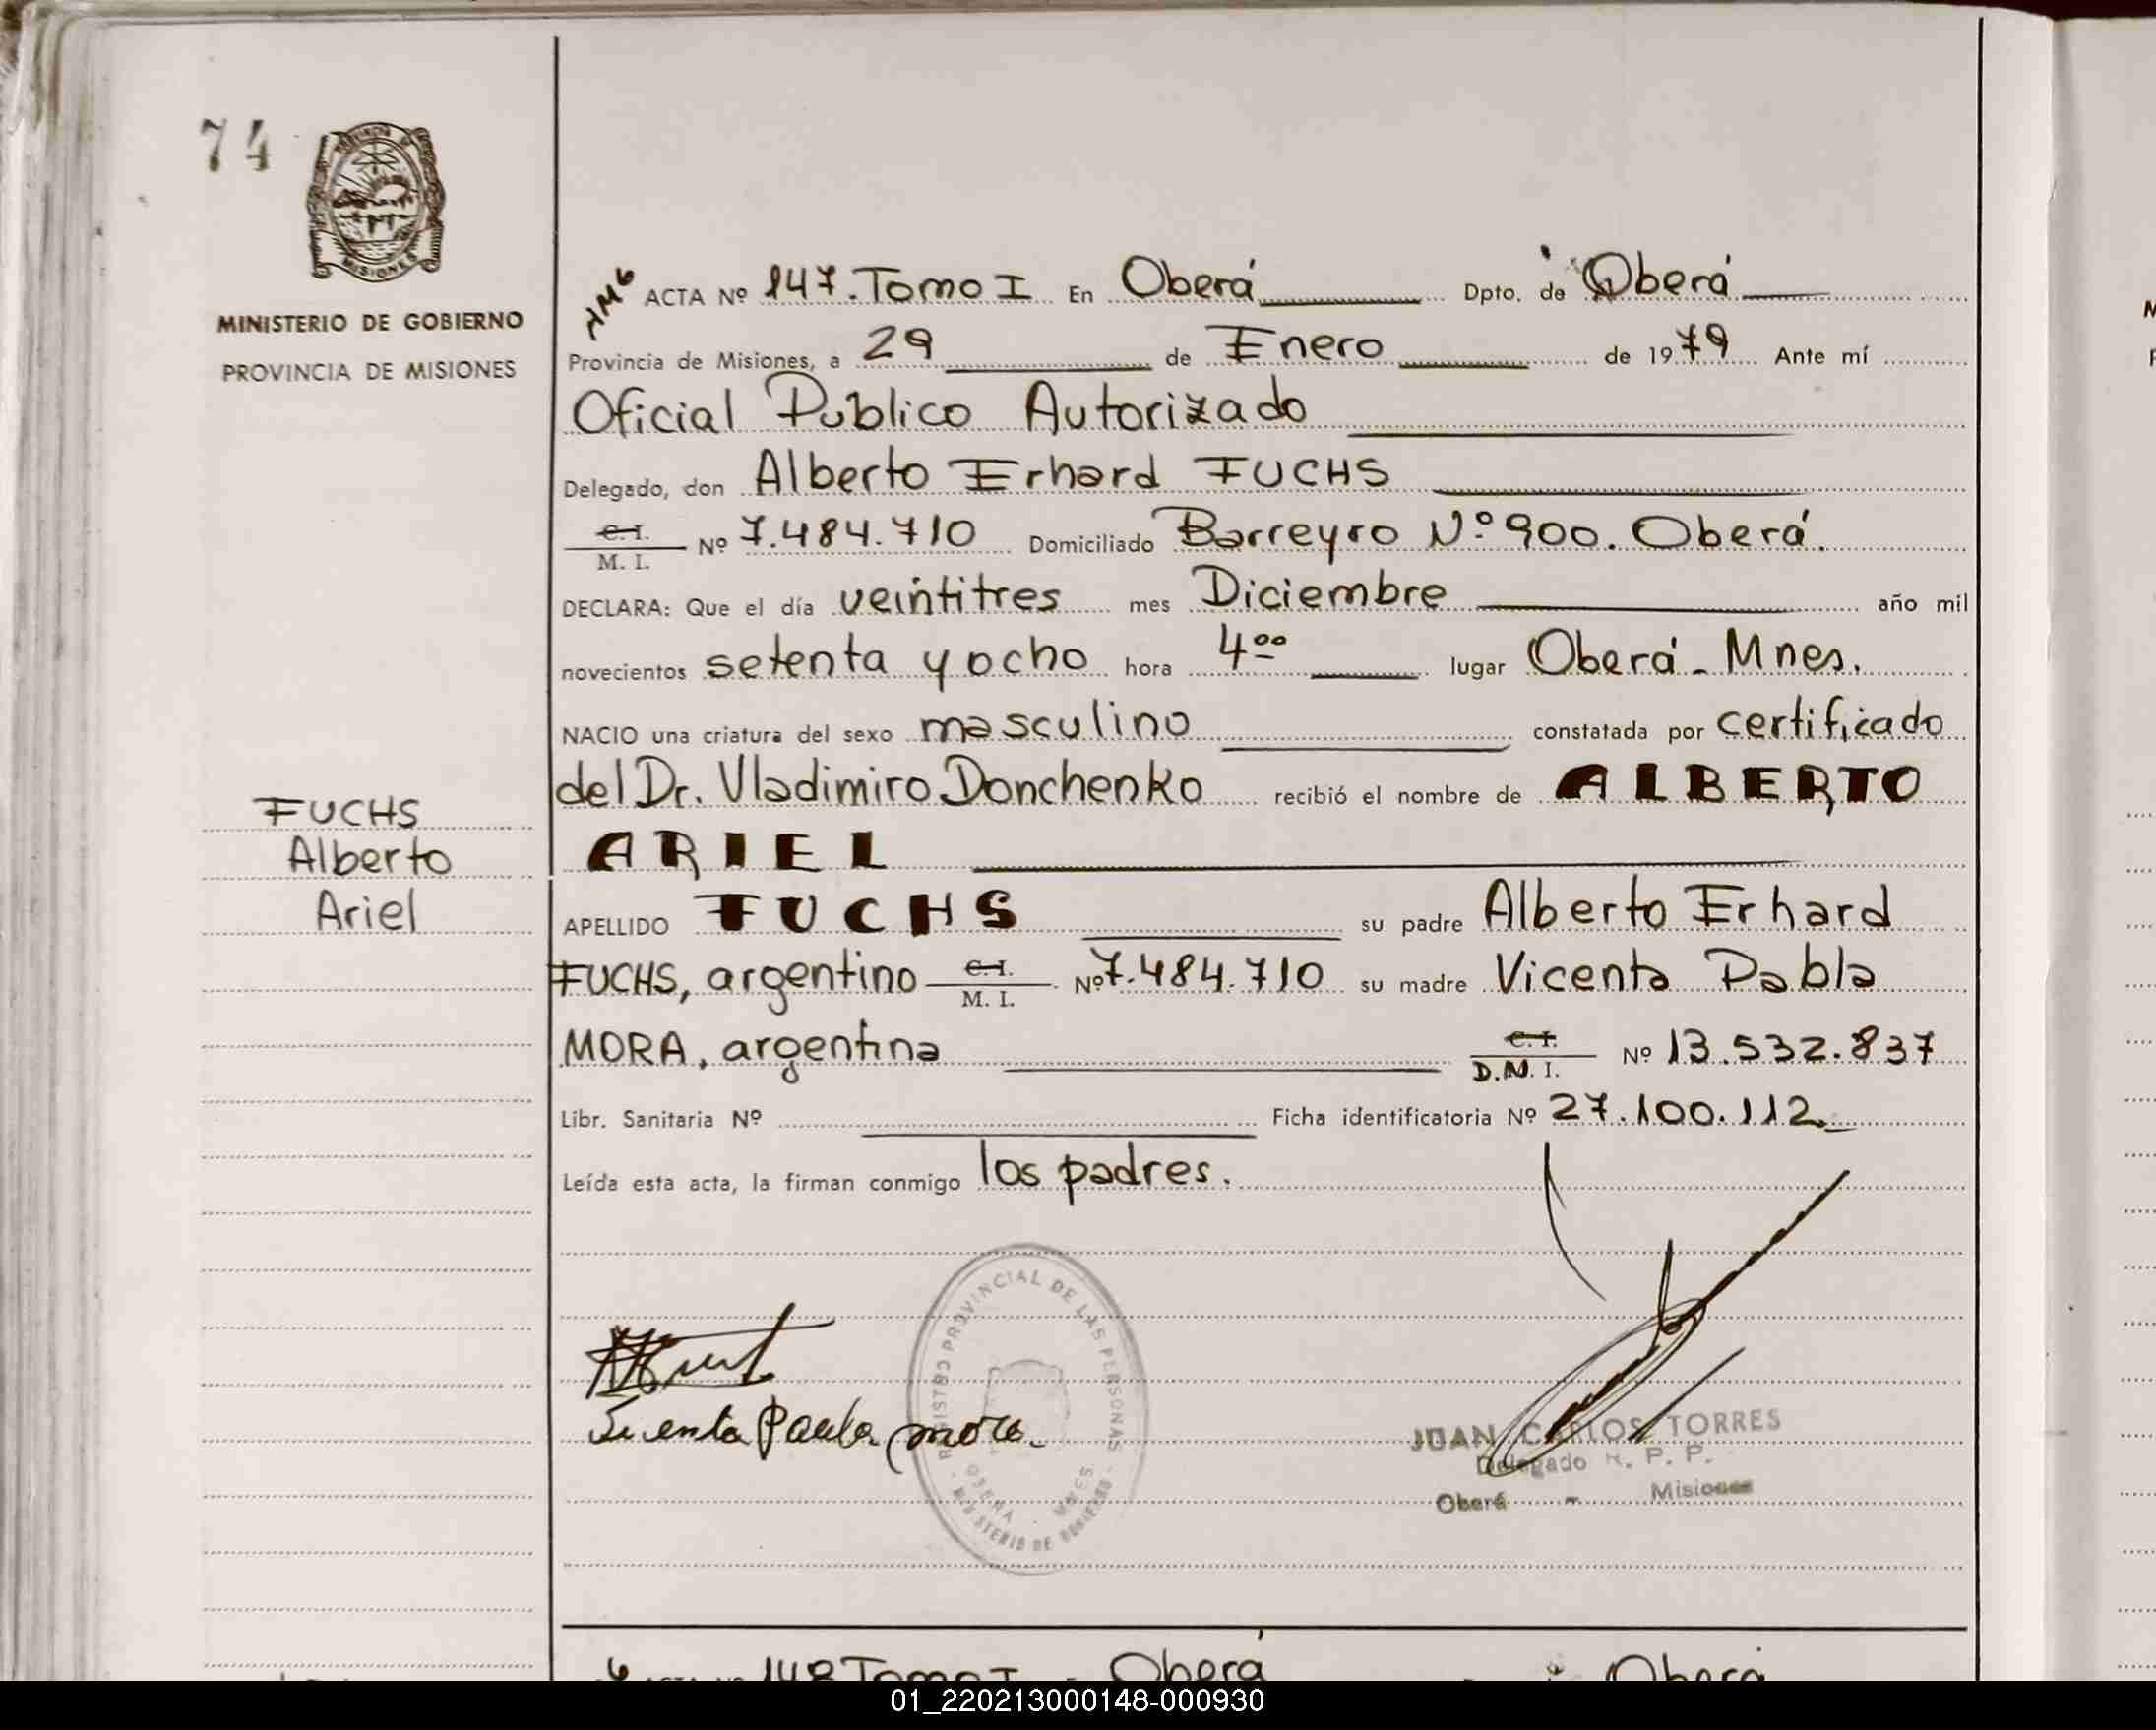 74
PROVINCIA DE
MISIONES
MINISTERIO DE GOBIERNO
PROVINCIA DE MISIONES
FUCHS
Alberto
Ariel
ACTA Nº 147. Tomo I En Oberá Dpto. de Oberá
Provincia de Misiones, a 29 de Enero de 1979 Ante mí
Oficial Publico Autorizado
Delegado, don Alberto Erhard FUCHS
C.I.
M. I. Nº 7.484.710 Domiciliado Barreyro Nº 900. Oberá.
DECLARA: Que el día veintitres mes Diciembre año mil
novecientos setenta y ocho hora 4⁰⁰ lugar Oberá - Mnes.
NACIO una criatura del sexo masculino constatada por certificado
del Dr. Vladimiro Donchenko recibió el nombre de ALBERTO
ARIEL
APELLIDO FUCHS su padre Alberto Erhard
FUCHS, argentino C.I. M. I. Nº 7.484.710 su madre Vicenta Pabla
MORA, argentina C.I. D.N.I. Nº 13.532.837
Libr. Sanitaria Nº Ficha identificatoria Nº 27.100.112
Leída esta acta, la firman conmigo los padres.
REGISTRO PROVINCIAL DE LAS PERSONAS
OBERA - MNES.
MINISTERIO DE GOBIERNO
JUAN CARLOS TORRES
Delegado R. P. P.
Oberá - Misiones
148 Tomo I Oberá Oberá
01_220213000148-000930